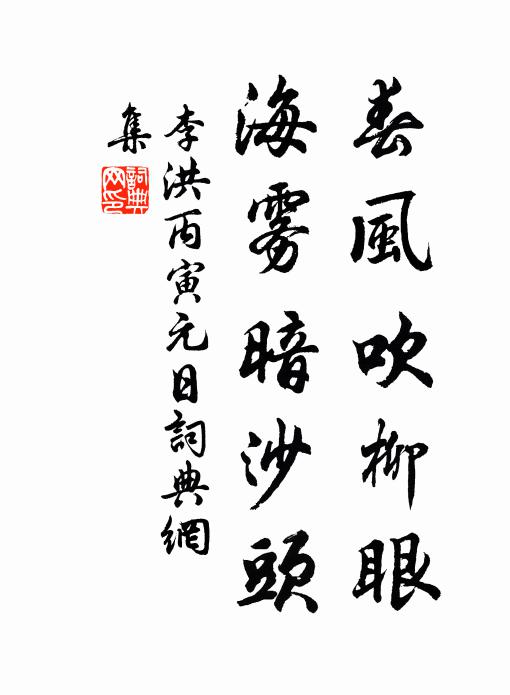 春風吹柳眼
海雾暗沙頭
李洪丙寅元日詞典網
集
詞典
网印